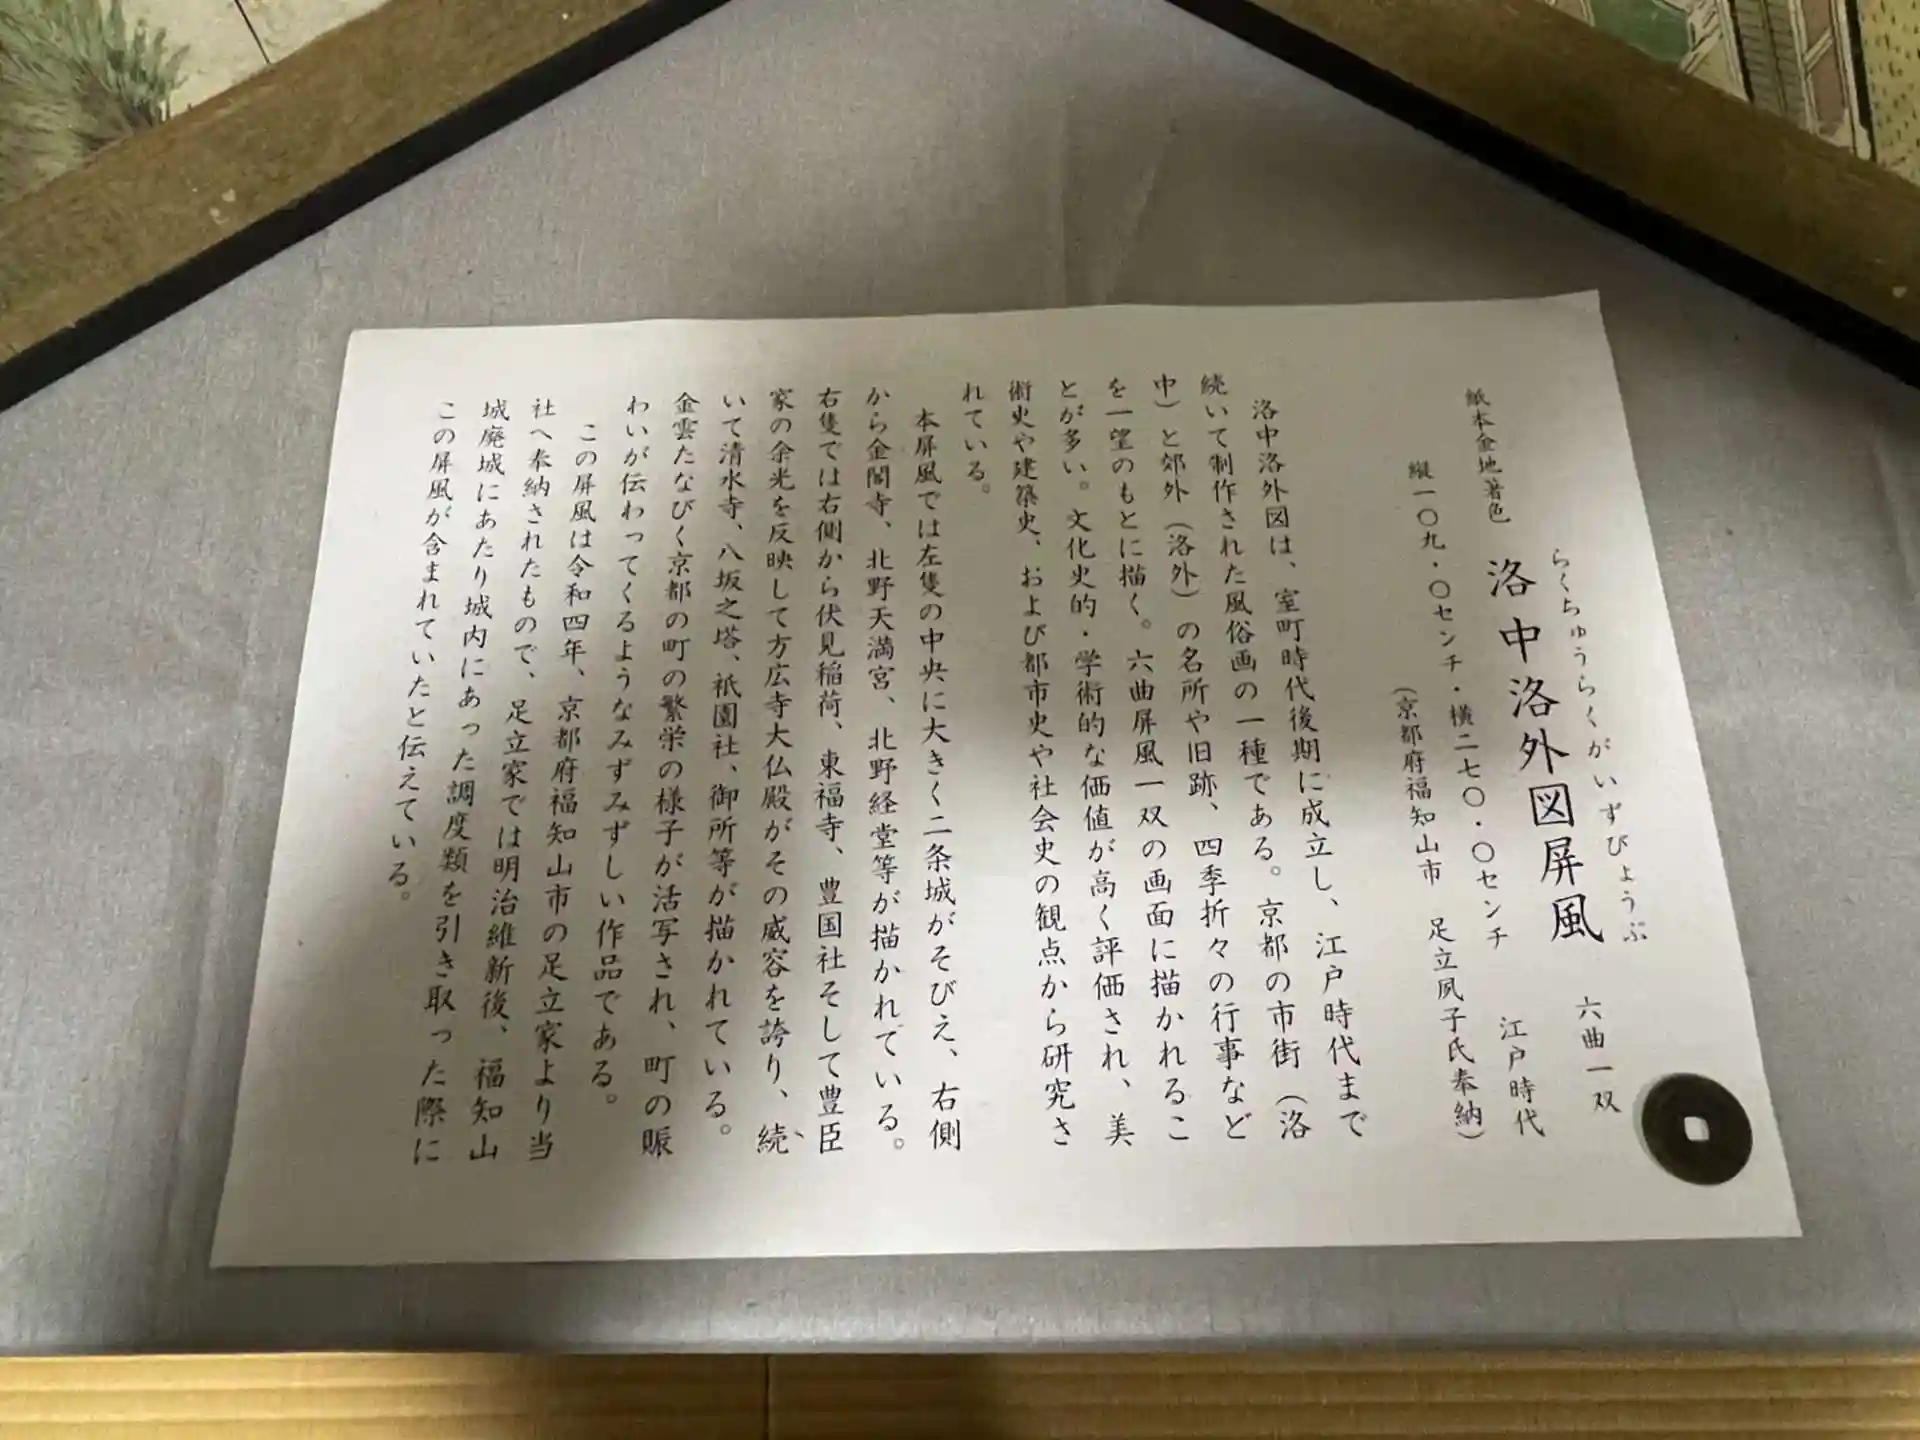 らくちゅうらくがいずびょうぶ
紙本金地著色 洛中洛外図屏風 六曲一双
縦一〇九・〇センチ・横二七〇・〇センチ 江戸時代
(京都府福知山市 足立夙子氏奉納)
洛中洛外図は、室町時代後期に成立し、江戸時代まで
続いて制作された風俗画の一種である。京都の市街(洛
中)と郊外(洛外)の名所や旧跡、四季折々の行事など
を一望のもとに描く。六曲屏風一双の画面に描かれるこ
とが多い。文化史的・学術的な価値が高く評価され、美
術史や建築史、および都市史や社会史の観点から研究さ
れている。
本屏風では左隻の中央に大きく二条城がそびえ、右側
から金閣寺、北野天満宮、北野経堂等が描かれている。
右隻では右側から伏見稲荷、東福寺、豊国社そして豊臣
家の余光を反映して方広寺大仏殿がその威容を誇り、続
いて清水寺、八坂之塔、祇園社、御所等が描かれている。
金雲たなびく京都の町の繁栄の様子が活写され、町の賑
わいが伝わってくるようなみずみずしい作品である。
この屏風は令和四年、京都府福知山市の足立家より当
社へ奉納されたもので、足立家では明治維新後、福知山
城廃城にあたり城内にあった調度類を引き取った際に
この屏風が含まれていたと伝えている。